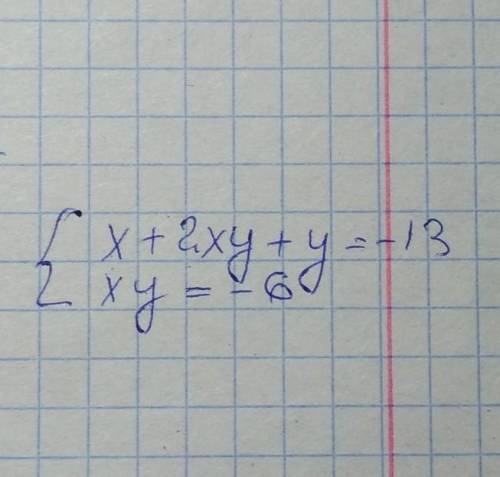 x + 2xy + y = -13
xy = -6